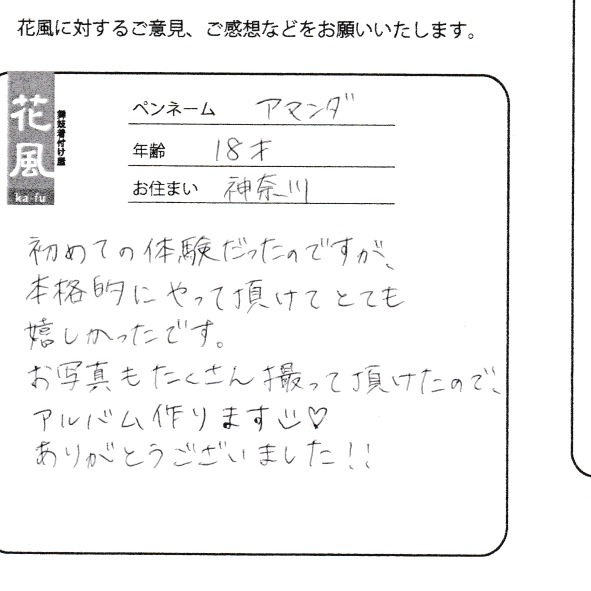 花風に対するご意見、ご感想などをお願いいたします。
花風
舞妓着付け屋
ka-fu
ペンネーム アマンダ
年齢 18才
お住まい 神奈川
初めての体験だったのですが、
本格的にやって頂けてとても
嬉しかったです。
お写真もたくさん撮って頂けたので、
アルバム作ります☺♡
ありがとうございました!!